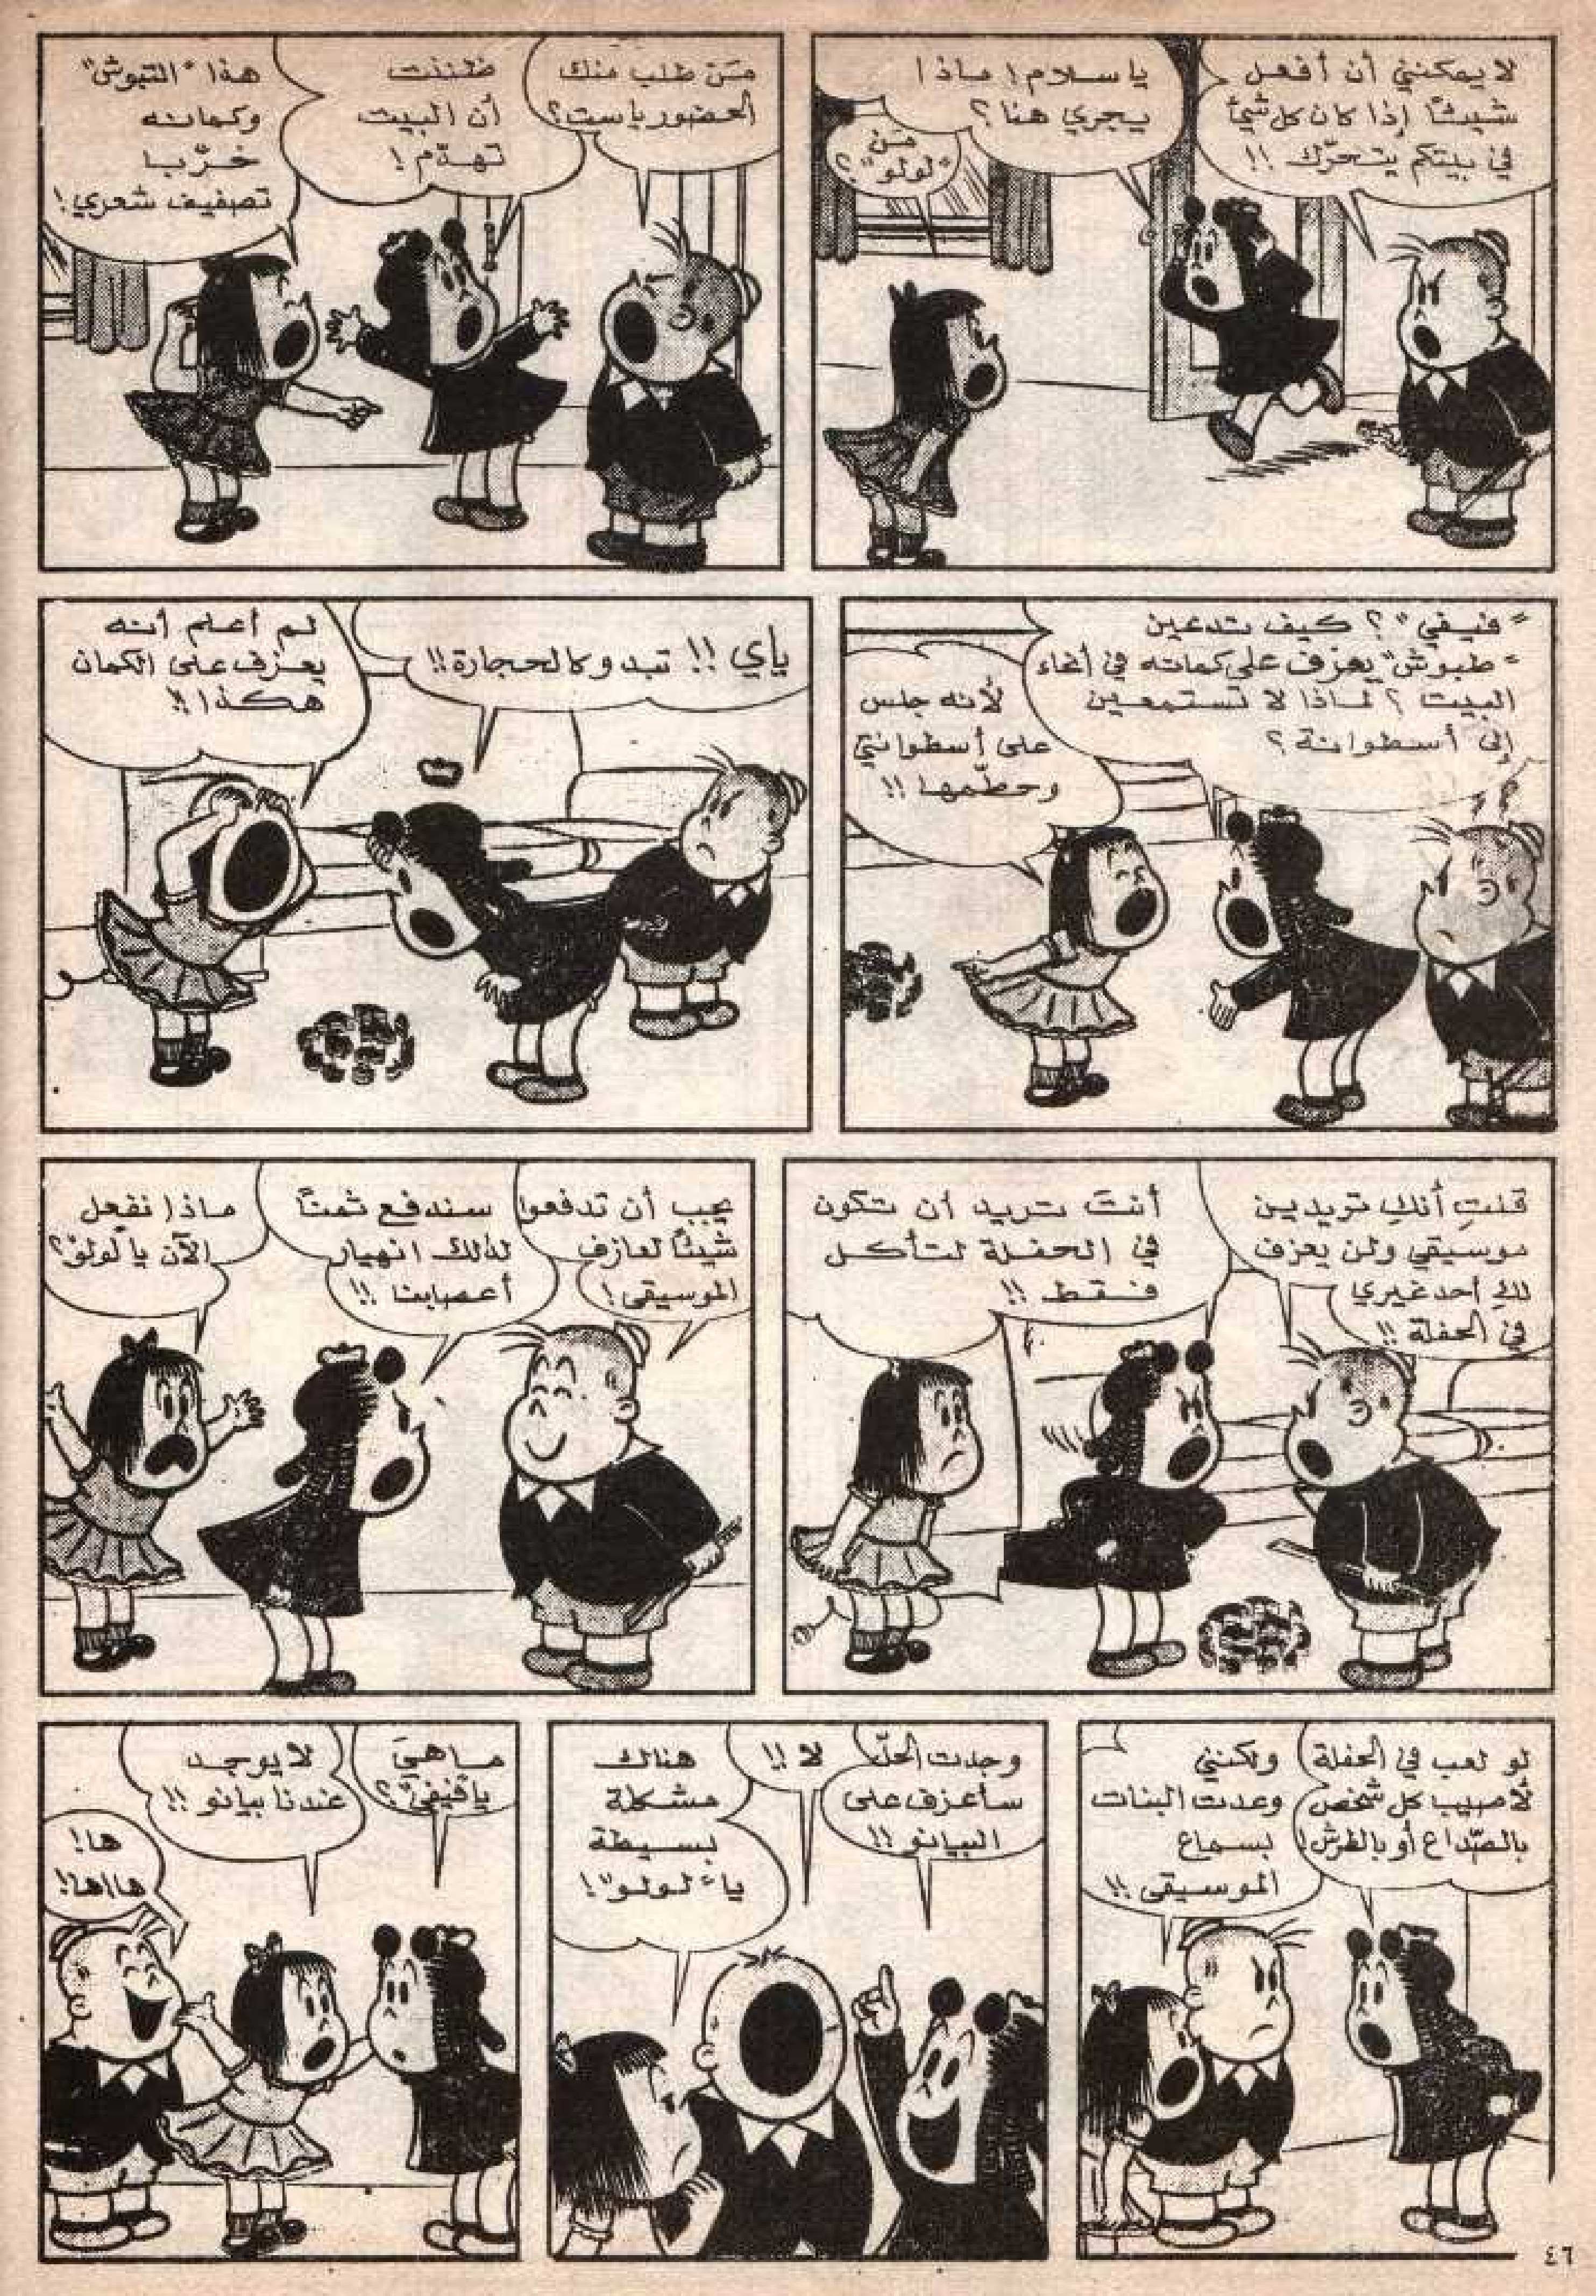 لا يمكنني أن أفعل
شيئاً إذا كان كل شيئ
في بيتكم يتحرّك !!
يا سلام ! ماذا
يجري هنا ؟
مَن
"لولو" ؟
مَن طلب منك
الحضور يا ست ؟
ظننت
أن البيت
تهدّم !
هذا "التبوش"
وكمانه
خرّبا
تصفيف شعري !
"فيفي" ؟ كيف تدعين
"طبوش" يعزف على كمانه في أنحاء
البيت ؟ لماذا لا تستمعين
إلى أسطوانة ؟
لأنه جلس
على أسطوانتي
وحطّمها !!
ياي !! تبدو كالحجارة !!
لم أعلم أنه
يعزف على الكمان
هكذا !!
قلتِ أنك تريدين
موسيقى ولن يعزف
لكِ أحد غيري
في الحفلة !!
أنتَ تريد أن تكون
في الحفلة لتأكل
فقط !!
يجب أن تدفعوا
شيئاً لعازف
الموسيقى !
سندفع ثمناً
لذلك انهيار
أعصابنا !!
ماذا نفعل
الآن يا "لولو" ؟
لو لعب في الحفلة
لأصيب كل شخص
بالصّداع أو بالطرش !
ولكنني
وعدت البنات
بسماع
الموسيقى !!
وجدت الحلّ
سأعزف على
البيانو !!
لا !!
هناك
مشكلة
بسيطة
يا "لولو" !
ما هيَ
يا "فيفي" ؟
لا يوجد
عندنا بيانو !!
ها !
هااها !
٤٦